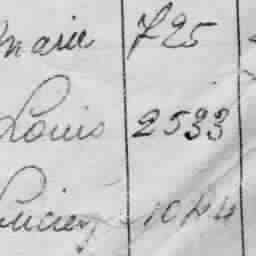 Marie 725
Louis 2533
Lucien 1044